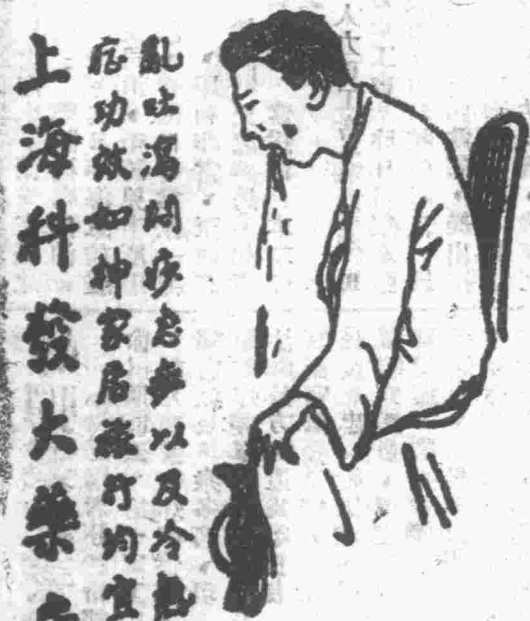 亂吐瀉急痧以及冷熱
症功效如神家居旅行均宜
上海科發大藥